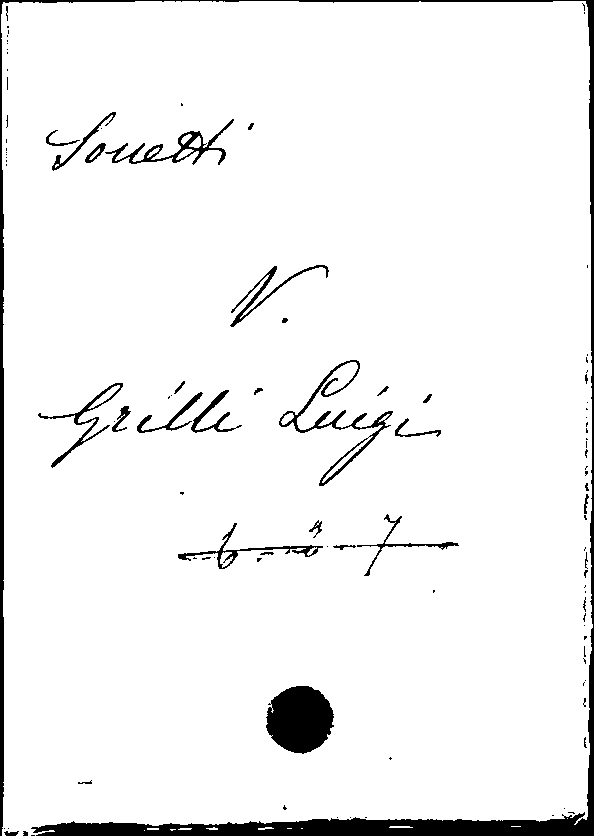 Sonetti
V.
Grilli Luigi